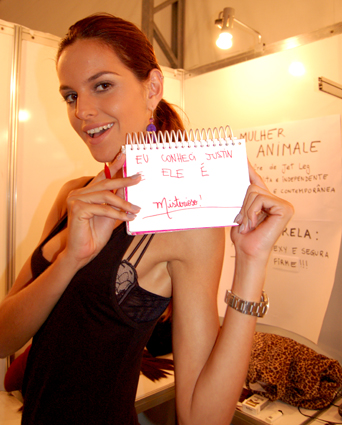 EU CONHECI JUSTIN
E ELE É
Misterioso!
MULHER
ANIMALE
de Jet Leg
INDEPENDENTE
É CONTEMPORÂNEA
RELA:
SEXY E SEGURA
FIRME!!!